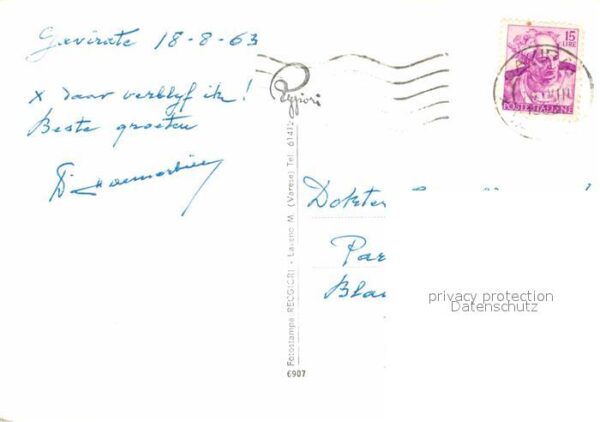 Gavirate 18-8-63
x daar verblijf ik!
Beste groeten
Reggiori
Fotostampa REGGIORI - Laveno M. (Varese) Tel. 61412
6907
15
LIRE
POSTE ITALIANE
Dokter
Par
Bla
privacy protection
Datenschutz